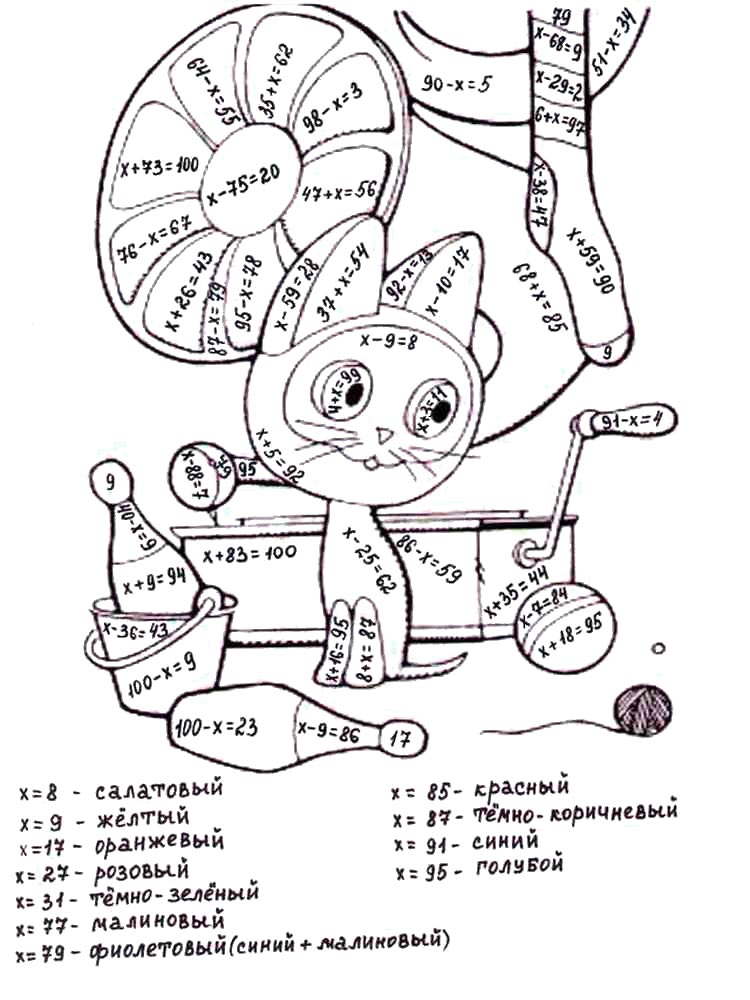 79
x-68=9
51-x=34
x-29=2
6+x=97
90-x=5
x-38=47
x+59=90
68+x=85
9
64-x=55
35+x=62
98-x=3
x+73=100
x-75=20
47+x=56
76-x=67
x+26=43
87-x=79
95-x=78
x-59=28
37+x=54
92-x=13
x-10=17
x-9=8
4+x=99
x+3=11
x+5=92
91-x=4
x-88=7
79
95
9
40-x=9
x+9=94
x+83=100
x-25=62
86-x=59
x+35=44
x-7=84
x+18=95
x-36=43
100-x=9
x+16=95
8+x=87
100-x=23
x-9=86
17
x=8 - салатовый
x=9 - жёлтый
x=17 - оранжевый
x=27 - розовый
x=31 - тёмно-зелёный
x=77 - малиновый
x=79 - фиолетовый (синий + малиновый)
x=85 - красный
x=87 - тёмно-коричневый
x=91 - синий
x=95 - голубой